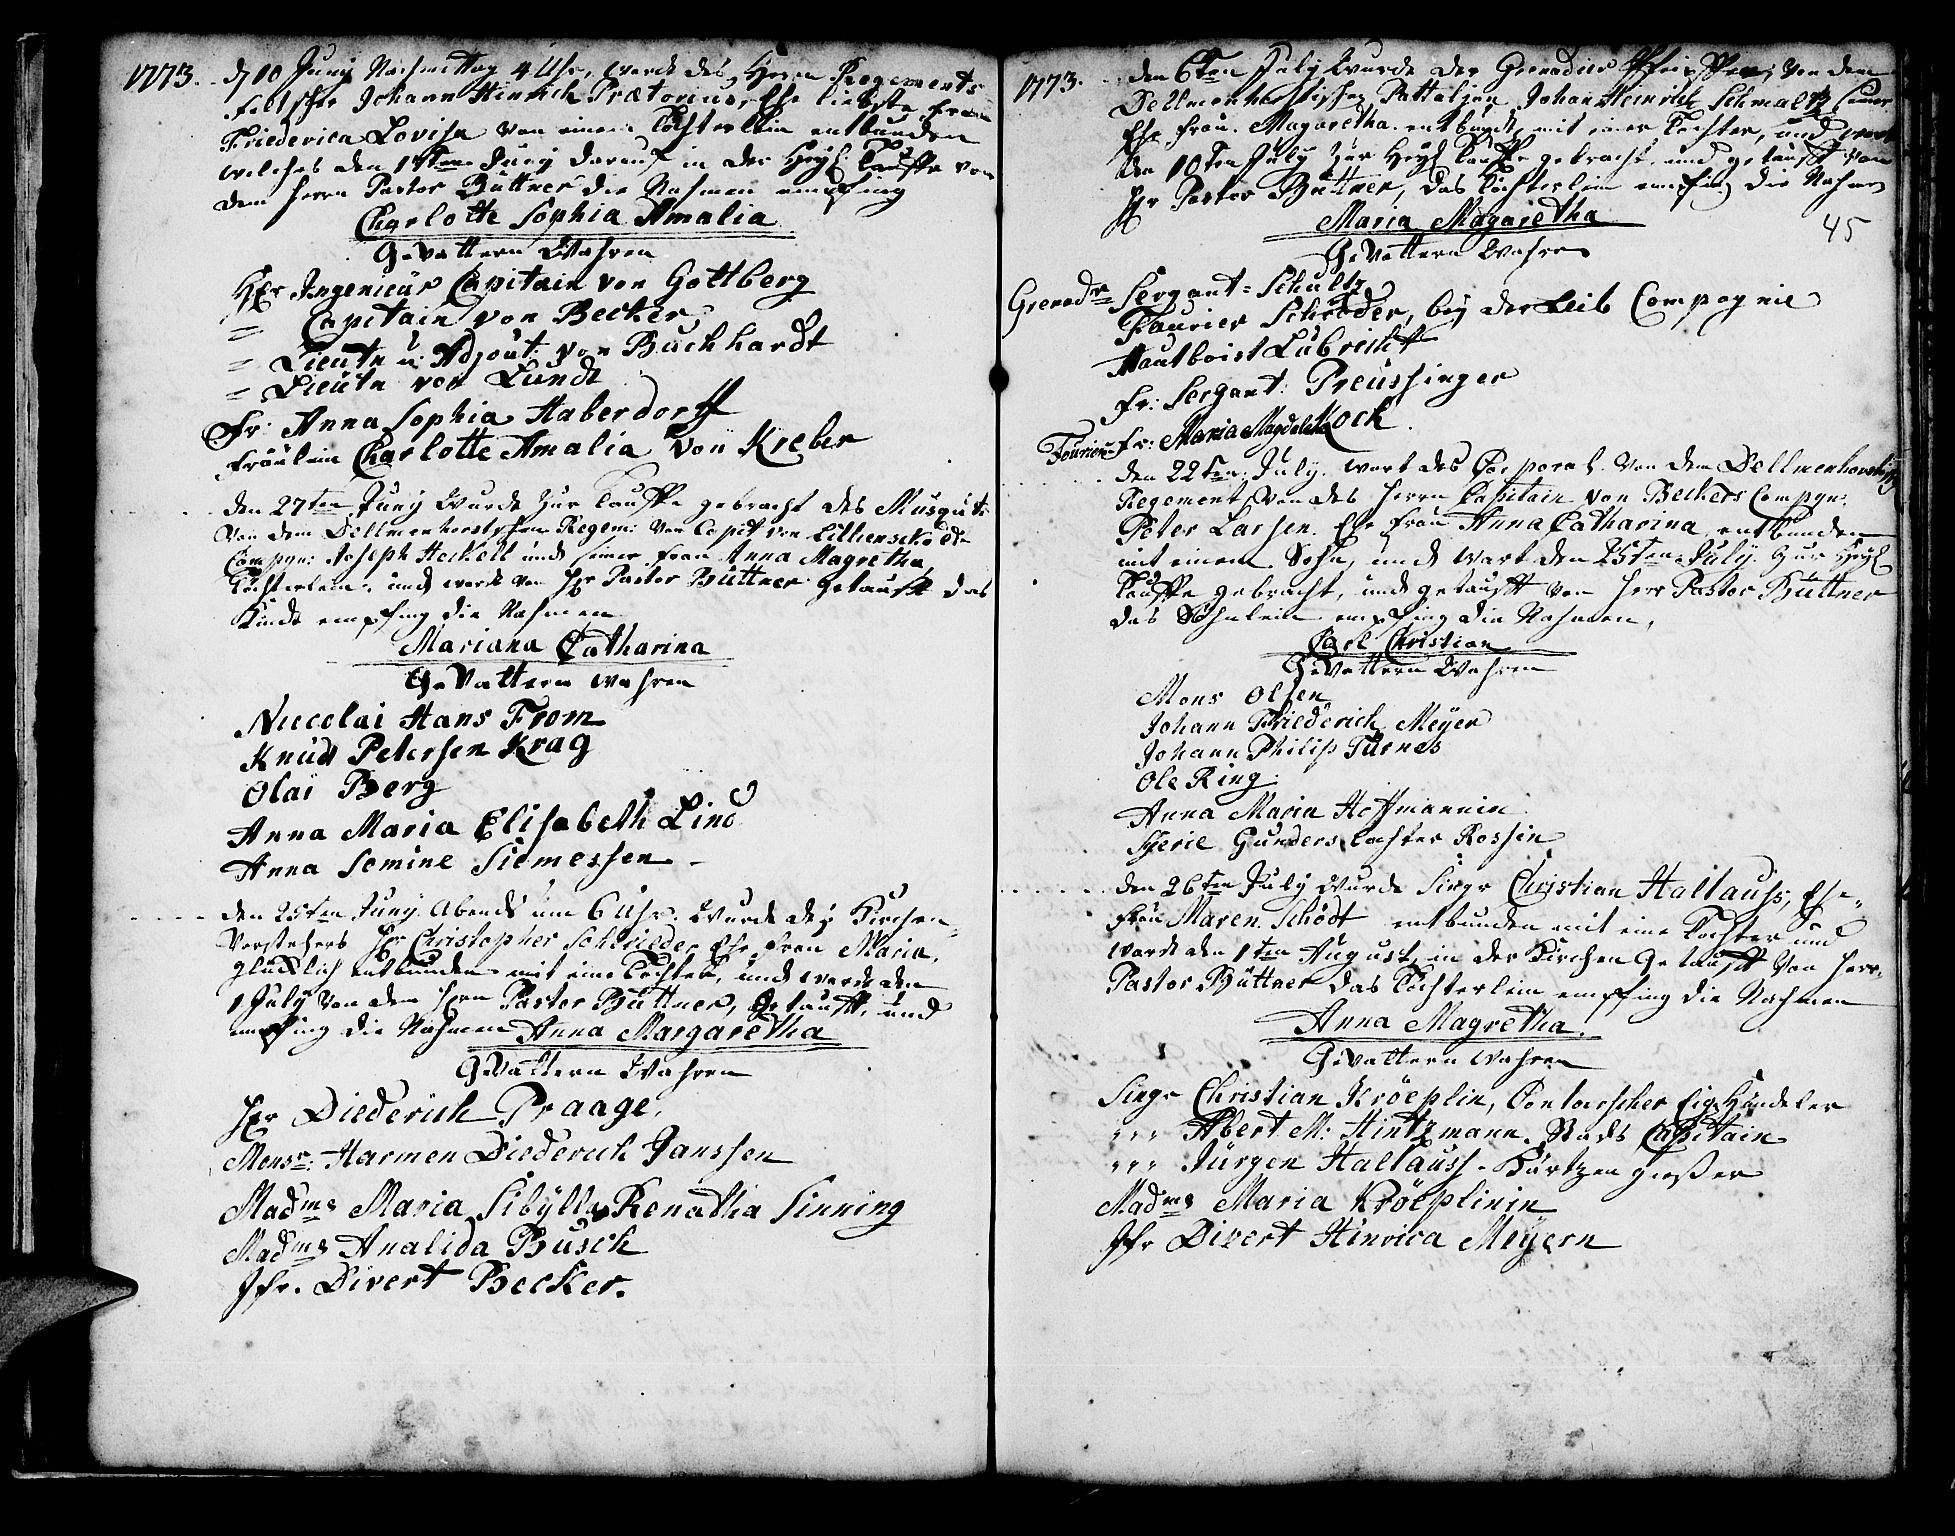 1773. d 10 Juny Nachmittag 4 Uhr, wurde des Herrn Regements
feltscher Johann Hinrich Prætorius, Ehe liebste frau
Friederica Lovisa von einem Töchterlein entbunden
welches den 14ten Juny darauf in der Heyl. Tauffe von
dem Herrn Pastor Büttner die Nahmen empfing
Charlotte Sophia Amalia
Gevattern Wahren
Hr Ingenieur Capitain von Gottberg
= Capitain von Becker
= Lieutn u: Adjout: von Buchhardt
= Lieutn von Lundt
Fr: Anna Sophia Haberdorff
fräulein Charlotte Amalia von Kreber
den 27ten Juny Wurde zur Tauffe gebracht des Musquti:
von dem Dellmenhorstschen Regem: von Capit von Lillienskiold
Compgn: Joseph Heckell und seiner frau Anna Magretha,
Töchterlein, und ward von Hr Pastor Büttner getauft das
Kindt empfing die Nahmen
Mariana Catharina
Gevattern wahren
Niecolai Hans From
Knud Petersen Krag
Olai Berg
Anna Maria Elisabeth Lind
Anna Somine Siemessen
den 25ten Juny Abends um 6 Uhr. Wurde des Kirchen-
Vorstehers Hr Christopher Schrieder Ehe frau Maria,
glücklich entbunden mit eine Tochter, und wurde den
1 July von dem Hrn Pastor Büttner, Getaufft, und
empfing die Nahmen Anna Margaretha
Gevattern Wahren
Hr Diederich Praage,
Monsr: Harmen Diederich Janssen
Madms Maria Sibylla Renatha Sinning
Madms Analida Busch
Jfr. Divert Becker.
1773. den 6ten July Wurde der Grenadier von dem
Dellmenhorstischen Battaljon Johan Heinrich Schmaltz seiner
Ehe frau. Magaretha entbunden mit einer Tochter, und ward
den 10ten July zur Heyl Tauffe gebracht und getauft von
Hr Pastor Büttner, das Töchterlein empfing die Nahmen
Maria Magaretha
45
Gevattern Wahren
Grenadr Sergant Schultz
Faurier Schröder, bey der Leib Compagnie
Hautboist Lübrecht
Fr: Sergant: Preussinger
Fourier fr: Maria Magdalena Kock.
den 22ten July. wart des Corporal von dem Dellmenhorsti
Regement, von des Herrn Capitain von Beckers Compgn:
Peter Larsen. Ehe frau Anna Catharina entbunden
mit einem Sohn, und wart den 25ten July zur Heyl
Tauffe gebracht, und getaufft von Herr Pastor Büttner
das Söhnlein empfing die Nahmen,
Carl Christian
Gevattern Wahren
Mons Olsen
Johann Friederich Meyer
Johann Philip Türnes
Ole Ring
Anna Maria Hoffmannin
Gunders tochter Rossin
den 26ten July Wurde Singr Christian Haltauss, Ehe-
frau Maren Schödt entbunden mit eine Tochter und
wurde den 1ten August, in der Kirchen Getaufft von Herr
Pastor Büttner das Töchterlein empfing die Nahmen
Anna Magretha.
Gevattern Wahren
Singr Christian Kröeplin, Contorscher Händeler
,,, Albert M: Hintzmann. Stads Capitain
,,, Jürgen Haltauss - Kürtzengießer
Madms Maria Kröeplinin
Jfr Divert Hinrica Meyern